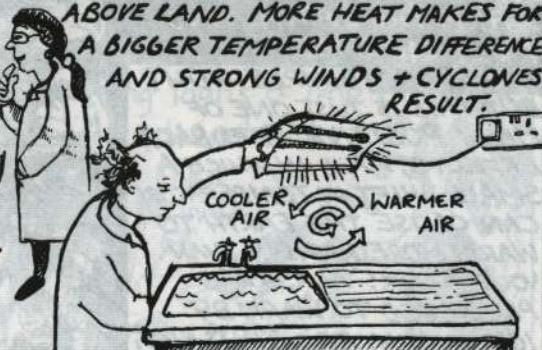 ABOVE LAND. MORE HEAT MAKES FOR
A BIGGER TEMPERATURE DIFFERENCE
AND STRONG WINDS + CYCLONES
RESULT.
COOLER
AIR
WARMER
AIR